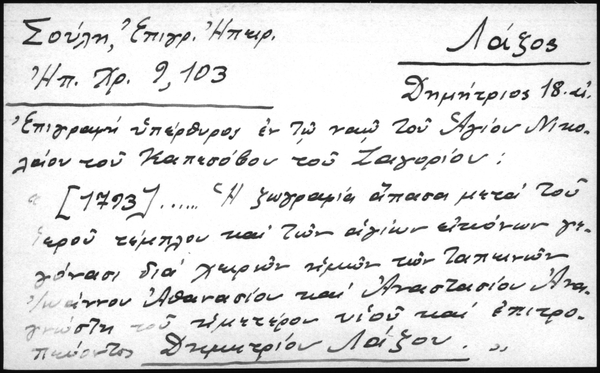 Σούλη, Ἐπιγρ. Ἠπειρ.
Ἠπ. Χρ. 9, 103
Λάζος
Δημήτριος 18. αἰ.
Ἐπιγραφή ὑπέρθυρος ἐν τῷ ναῷ τοῦ Ἁγίου Νικο-
λάου τοῦ Καπεσόβου τοῦ Ζαγορίου:
« [1793] ..... Ἡ ζωγραφία ἅπασα μετά τοῦ
ἱεροῦ τέμπλου καί τῶν ἁγίων εἰκόνων γε-
γόνασι διά χειρῶν ἡμῶν τῶν ταπεινῶν
Ἰωάννου Ἀθανασίου καί Ἀναστασίου Ἀνα-
γνώστη τοῦ ἡμετέρου υἱοῦ καί ἐπιτρο-
πεύοντος Δημητρίου Λάζου. »